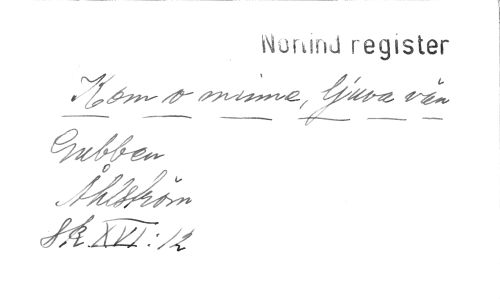 Norlind register
Kom o minne, ljuva vän
Gubben
Åhlström
Sk XVI:12